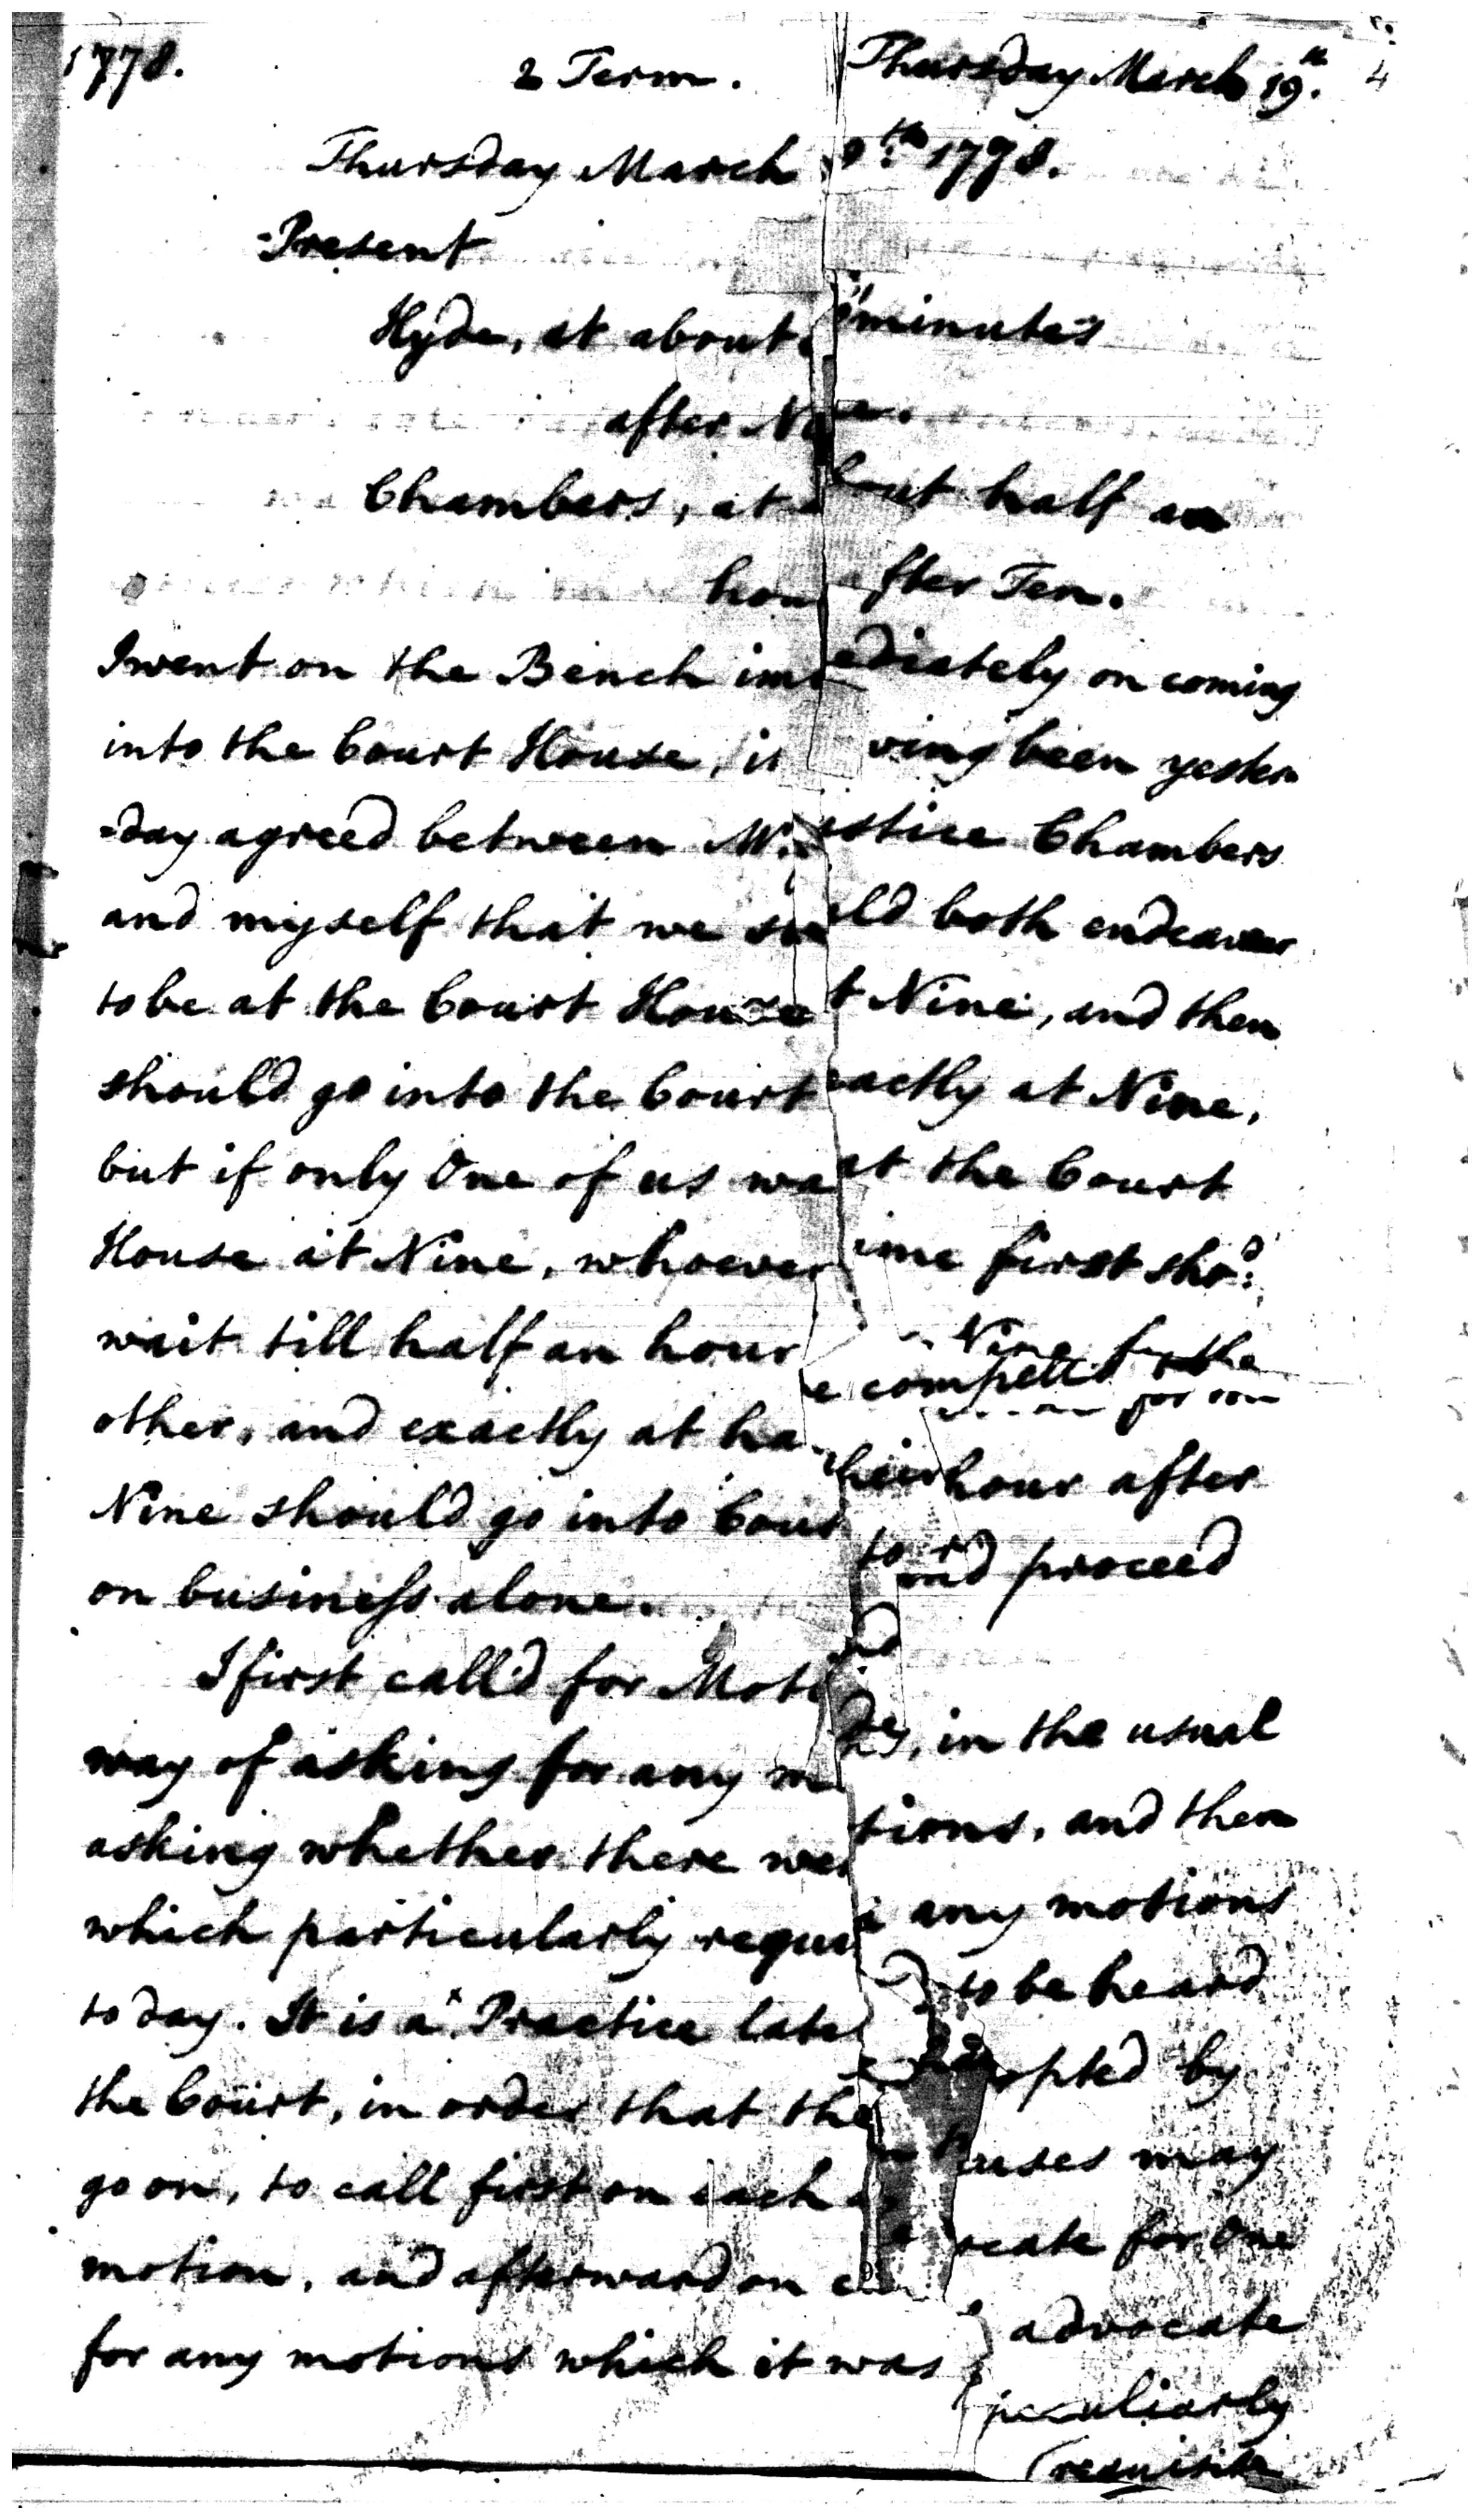 1778. 2 Term. Thursday March 19.th 4
Thursday March 9th. 1778.
Present
Hyde, at about minutes
after Ne.
Chambers, at about half an
hour after Ten.
I went on the Bench immediately on coming
into the Court House, it having been yester
-day agreed between Mr. Justice Chambers
and myself that we should both endeavour
to be at the Court House at Nine, and then
should go into the Court exactly at Nine,
but if only One of us was at the Court
House at Nine, whoever came first sho.d
wait till half an hour Nine for the
e compelled
other, and exactly at ha hour after
their
Nine should go into Court and proceed
to
on business alone.
I first call'd for Moti, in the usual
way of asking for any motions, and then
asking whether there were any motions
which particularly required to be heard
to day. It is a Practice lately adopted by
the Court, in order that the Causes may
go on, to call first on each advocate for One
motion, and afterward on each advocate
for any motions which it was peculiarly
requisite